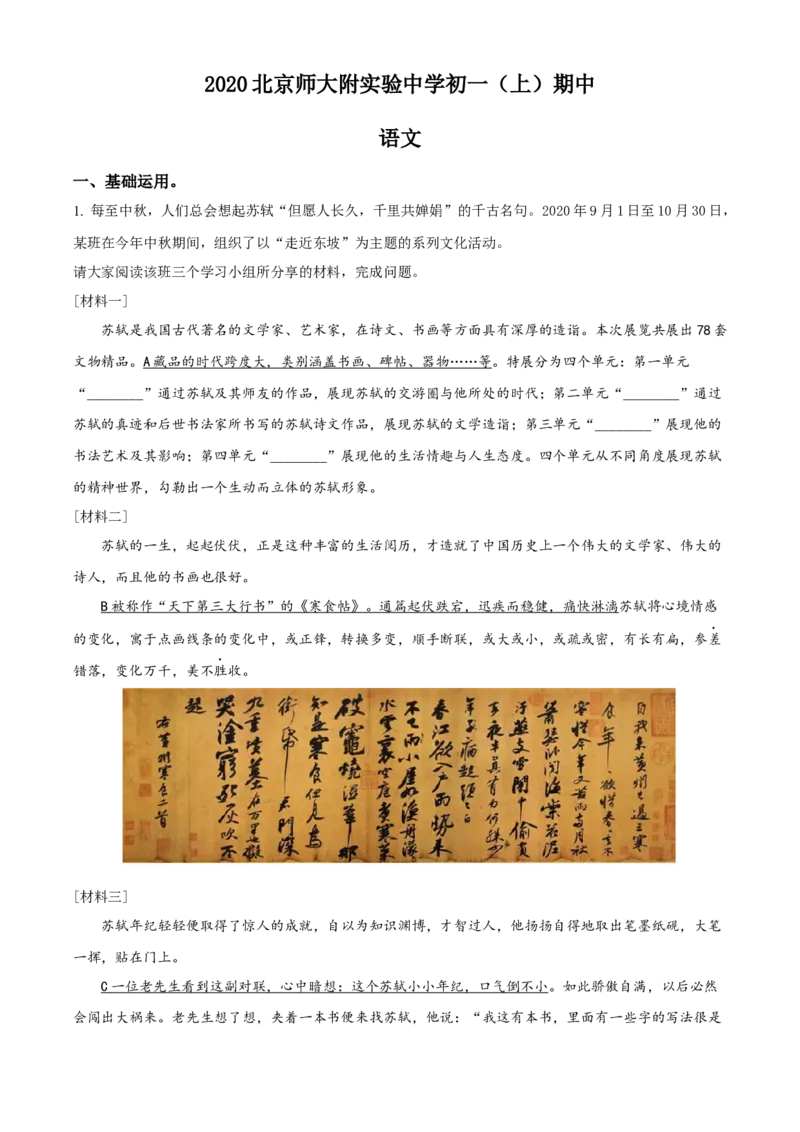 2020北京师大附实验中学初一（上）期中
语文
一、基础运用。
1. 每至中秋，人们总会想起苏轼“但愿人长久，千里共婵娟”的千古名句。2020年9月1日至10月30日，
某班在今年中秋期间，组织了以“走近东坡”为主题的系列文化活动。
请大家阅读该班三个学习小组所分享的材料，完成问题。
[材料一]
苏轼是我国古代著名的文学家、艺术家，在诗文、书画等方面具有深厚的造诣。本次展览共展出78套
文物精品。A藏品的时代跨度大，类别涵盖书画、碑帖、器物……等。特展分为四个单元：第一单元
“________”通过苏轼及其师友的作品，展现苏轼的交游圈与他所处的时代；第二单元“________”通过
苏轼的真迹和后世书法家所书写的苏轼诗文作品，展现苏轼的文学造诣；第三单元“________”展现他的
书法艺术及其影响；第四单元“________”展现他的生活情趣与人生态度。四个单元从不同角度展现苏轼
的精神世界，勾勒出一个生动而立体的苏轼形象。
[材料二]
苏轼的一生，起起伏伏，正是这种丰富的生活阅历，才造就了中国历史上一个伟大的文学家、伟大的
诗人，而且他的书画也很好。
B被称作“天下第三大行书”的《寒食帖》。通篇起伏跌宕，迅疾而稳健，痛快淋漓苏轼将心境情感
的变化，寓于点画线条的变化中，或正锋，转换多变，顺手断联，或大或小，或疏或密，有长有扁，参差
错落，变化万千，美不胜收。
[材料三]
苏轼年纪轻轻便取得了惊人的成就，自以为知识渊博，才智过人，他扬扬自得地取出笔墨纸砚，大笔
一挥，贴在门上。
C一位老先生看到这副对联，心中暗想：这个苏轼小小年纪，口气倒不小。如此骄傲自满，以后必然
会闯出大祸来。老先生想了想，夹着一本书便来找苏轼，他说：“我这有本书，里面有一些字的写法很是